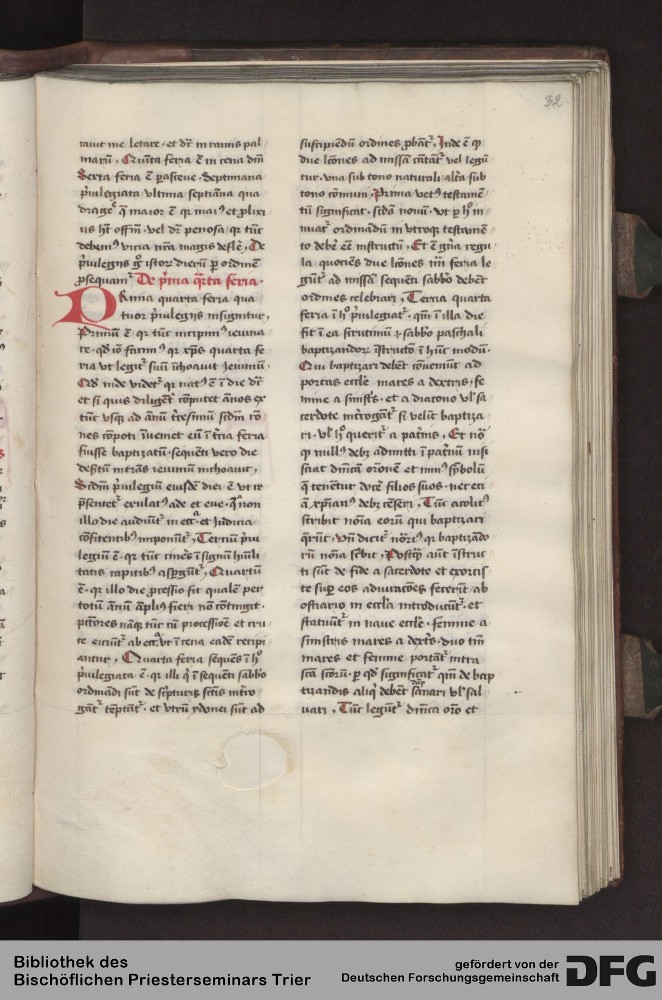 32
tauit me letare · et dr̄ in ramis pal
maꝝ̄, Quīta feria ē in cena dn̄i
Sexta feria ē pasceue · Septimana
p̄uilegiata vltima septiāna qua
maior ē qr maiꝰ et plixi
us ht offm̄ · vel dr̄ penosa qr tūc
debemꝰ vicia nr̄a magis deflē, De
p̄uilegijs gͦ istoꝝ dieꝝ ꝑ ordinē
ꝓsequamr̄ De p̄ma qͣrta feria ·
PRima quarta feria qua
tuor p̄uilegijs insignitur,
Primū ē qr tūc incipimꝰ ieiuna
re · qd iō facimꝰ qr xp̄s quarta fe
ria vt legit̄ suū īchoauit ieiuniū ·
Qd inde videt̄ qr natꝰ ē ī die dn̄i
et si quis diligēt̄ cōputet ānos ex
tūc vsqꝫ ad annū t̄cesimū scdm̄ cō
nes cōpoti īueniet eū ī t̄cia feria
fuisse baptizatū · sequēti vero die
deſtū int̄ans ieiuniū inchoauit,
Scdm̄ p̄uilegiū eiusdē diei ē vt re
p̄sentet̄ exulatꝰ ade et eue · qͣ non
illo die audiūt̄ in ecc̄ͣ et Iudicia
cōfitentibꝰ inponūt̄, Terciū p̄ui
legiū ē · qr tūc cines ī signū hūili
tatis capitibꝰ aspgūt̄, Quartū
ē · qr illo die ꝓcessio fit qualē per
totū ānū āplius fieri nō cōtingit ·
pctōres nāqꝫ tūc cū ꝓcessiōe et cru
ce eiciūt̄ ab ecc̄ͣ vt ī cena eadē recipi
antur, Quarta feria sequēs ī hͦ
p̄uilegiata ē · qr illi qͥ ī sequēti sabbo
ordinādi sūt de sc̄pturis sctīs int̄ro
gāt̄ tēptāt̄ · et vtrū ydonei sūt ad
suscipiēdū ordines ꝓbāt̄, Inde ē ꝙ
due lcōnes ad missā cātāt̄ vel legū
tur · vna sub tono naturali · alt̄a sub
tono cōmuni, Prima vetꝰ testamē
tū significat · scda novū · vt ꝑ hͦ in
nuat̄ ordinādū in vtroqꝫ testamē
to debē eē instructū, Et ē gn̄a regu
la · quociēs due lcōnes iiii feria le
gūt̄ ad missā sequēti sabbo debēt
ordines celebrari, Tercia quarta
feria ī hͦ p̄uilegiat̄ · qm̄ ī illa die
fit ī ea scrutiniū ⁊ sabbo paschali
baptizandoꝝ īstructō ī hūc modū ·
Qui baptizari debēt cōueniūt ad
portas eccl̄e · mares a dextris · fe
mine a sinistˢ · et a diacono vl̄ sa
cerdote int̄rogāt̄ si velīt baptiza
ri · vl̄ hͦ querit̄ a pat̄nis, Et nōͣ
ꝙ nullꝰ debꝫ admitti ī pat̄nū nisi
sciat dn̄icā oronē et minꝰ sȳbolū
qͣ tenētur docē filios suos · nec eci
ā xp̄ianꝰ debꝫ cēseri, Tūc acolitꝰ
scribit noīa eoꝝ qui baptizari
qͣrūt, vn̄ dicit̄ nōreꝰ qr baptizādo
rū noīa sc̄bit, Postqͣ aūt īstruc
ti sūt de fide a sacerdote et exorcis
te suꝑ eos adiuracōes fecerūt / ab
ostiario in eccl̄ia introducūt̄ · et
statuūt̄ in naue eccl̄e · femine a
sinistris mares a dextˢ · duo tm̄
mares et femine portāt̄ intra
scā scōꝝ · ꝑ qd significat̄ qm̄ de bap
tizandis aliqͥ debēt dāpnari vl̄ sal
uari, Tūc legūt̄ dn̄ica oro et
Bibliothek des
Bischöflichen Priesterseminars Trier
gefördert von der
Deutschen Forschungsgemeinschaft
DFG